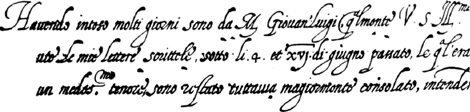 Havendo inteso molti giorni sono da M. Giovan'luigi (q̃lmente V. S. Ill.ma
ute de mie lettere scrittele, sotto li. 4. et xvi. di giugno passato, le q̃l'era
un medes.mo tenore, sono restato tuttavia magiormente consolato, intende